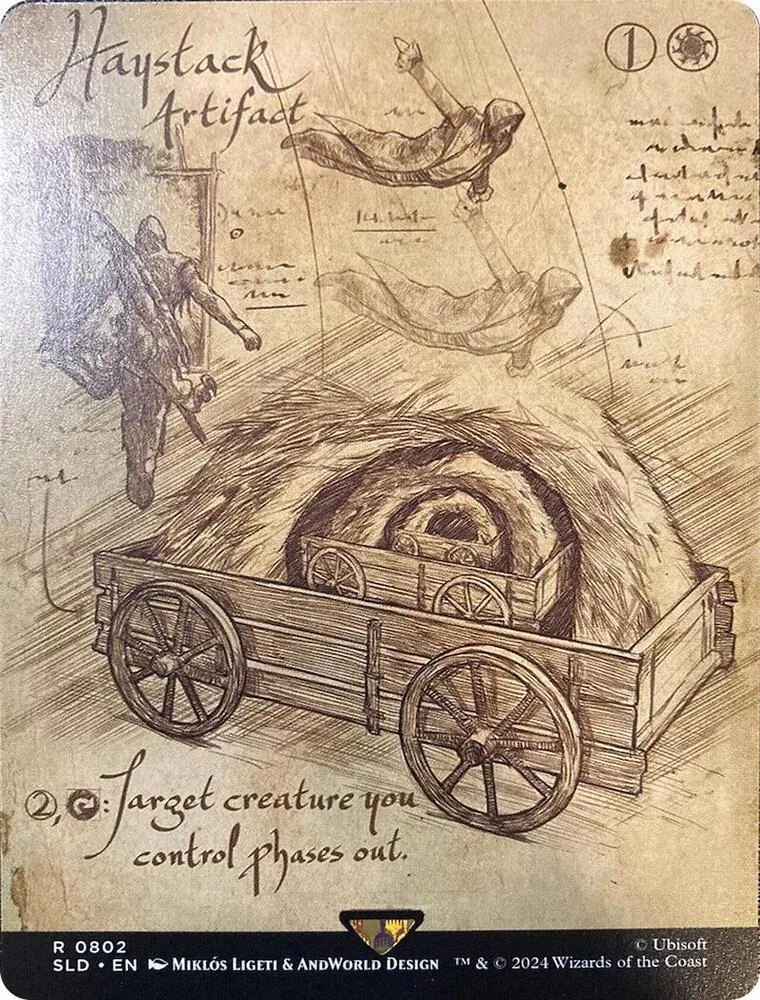 Haystack
1
Artifact
2, : Target creature you
control phases out.
R 0802
SLD • EN MIKLÓS LIGETI & ANDWORLD DESIGN
© Ubisoft
™ & © 2024 Wizards of the Coast